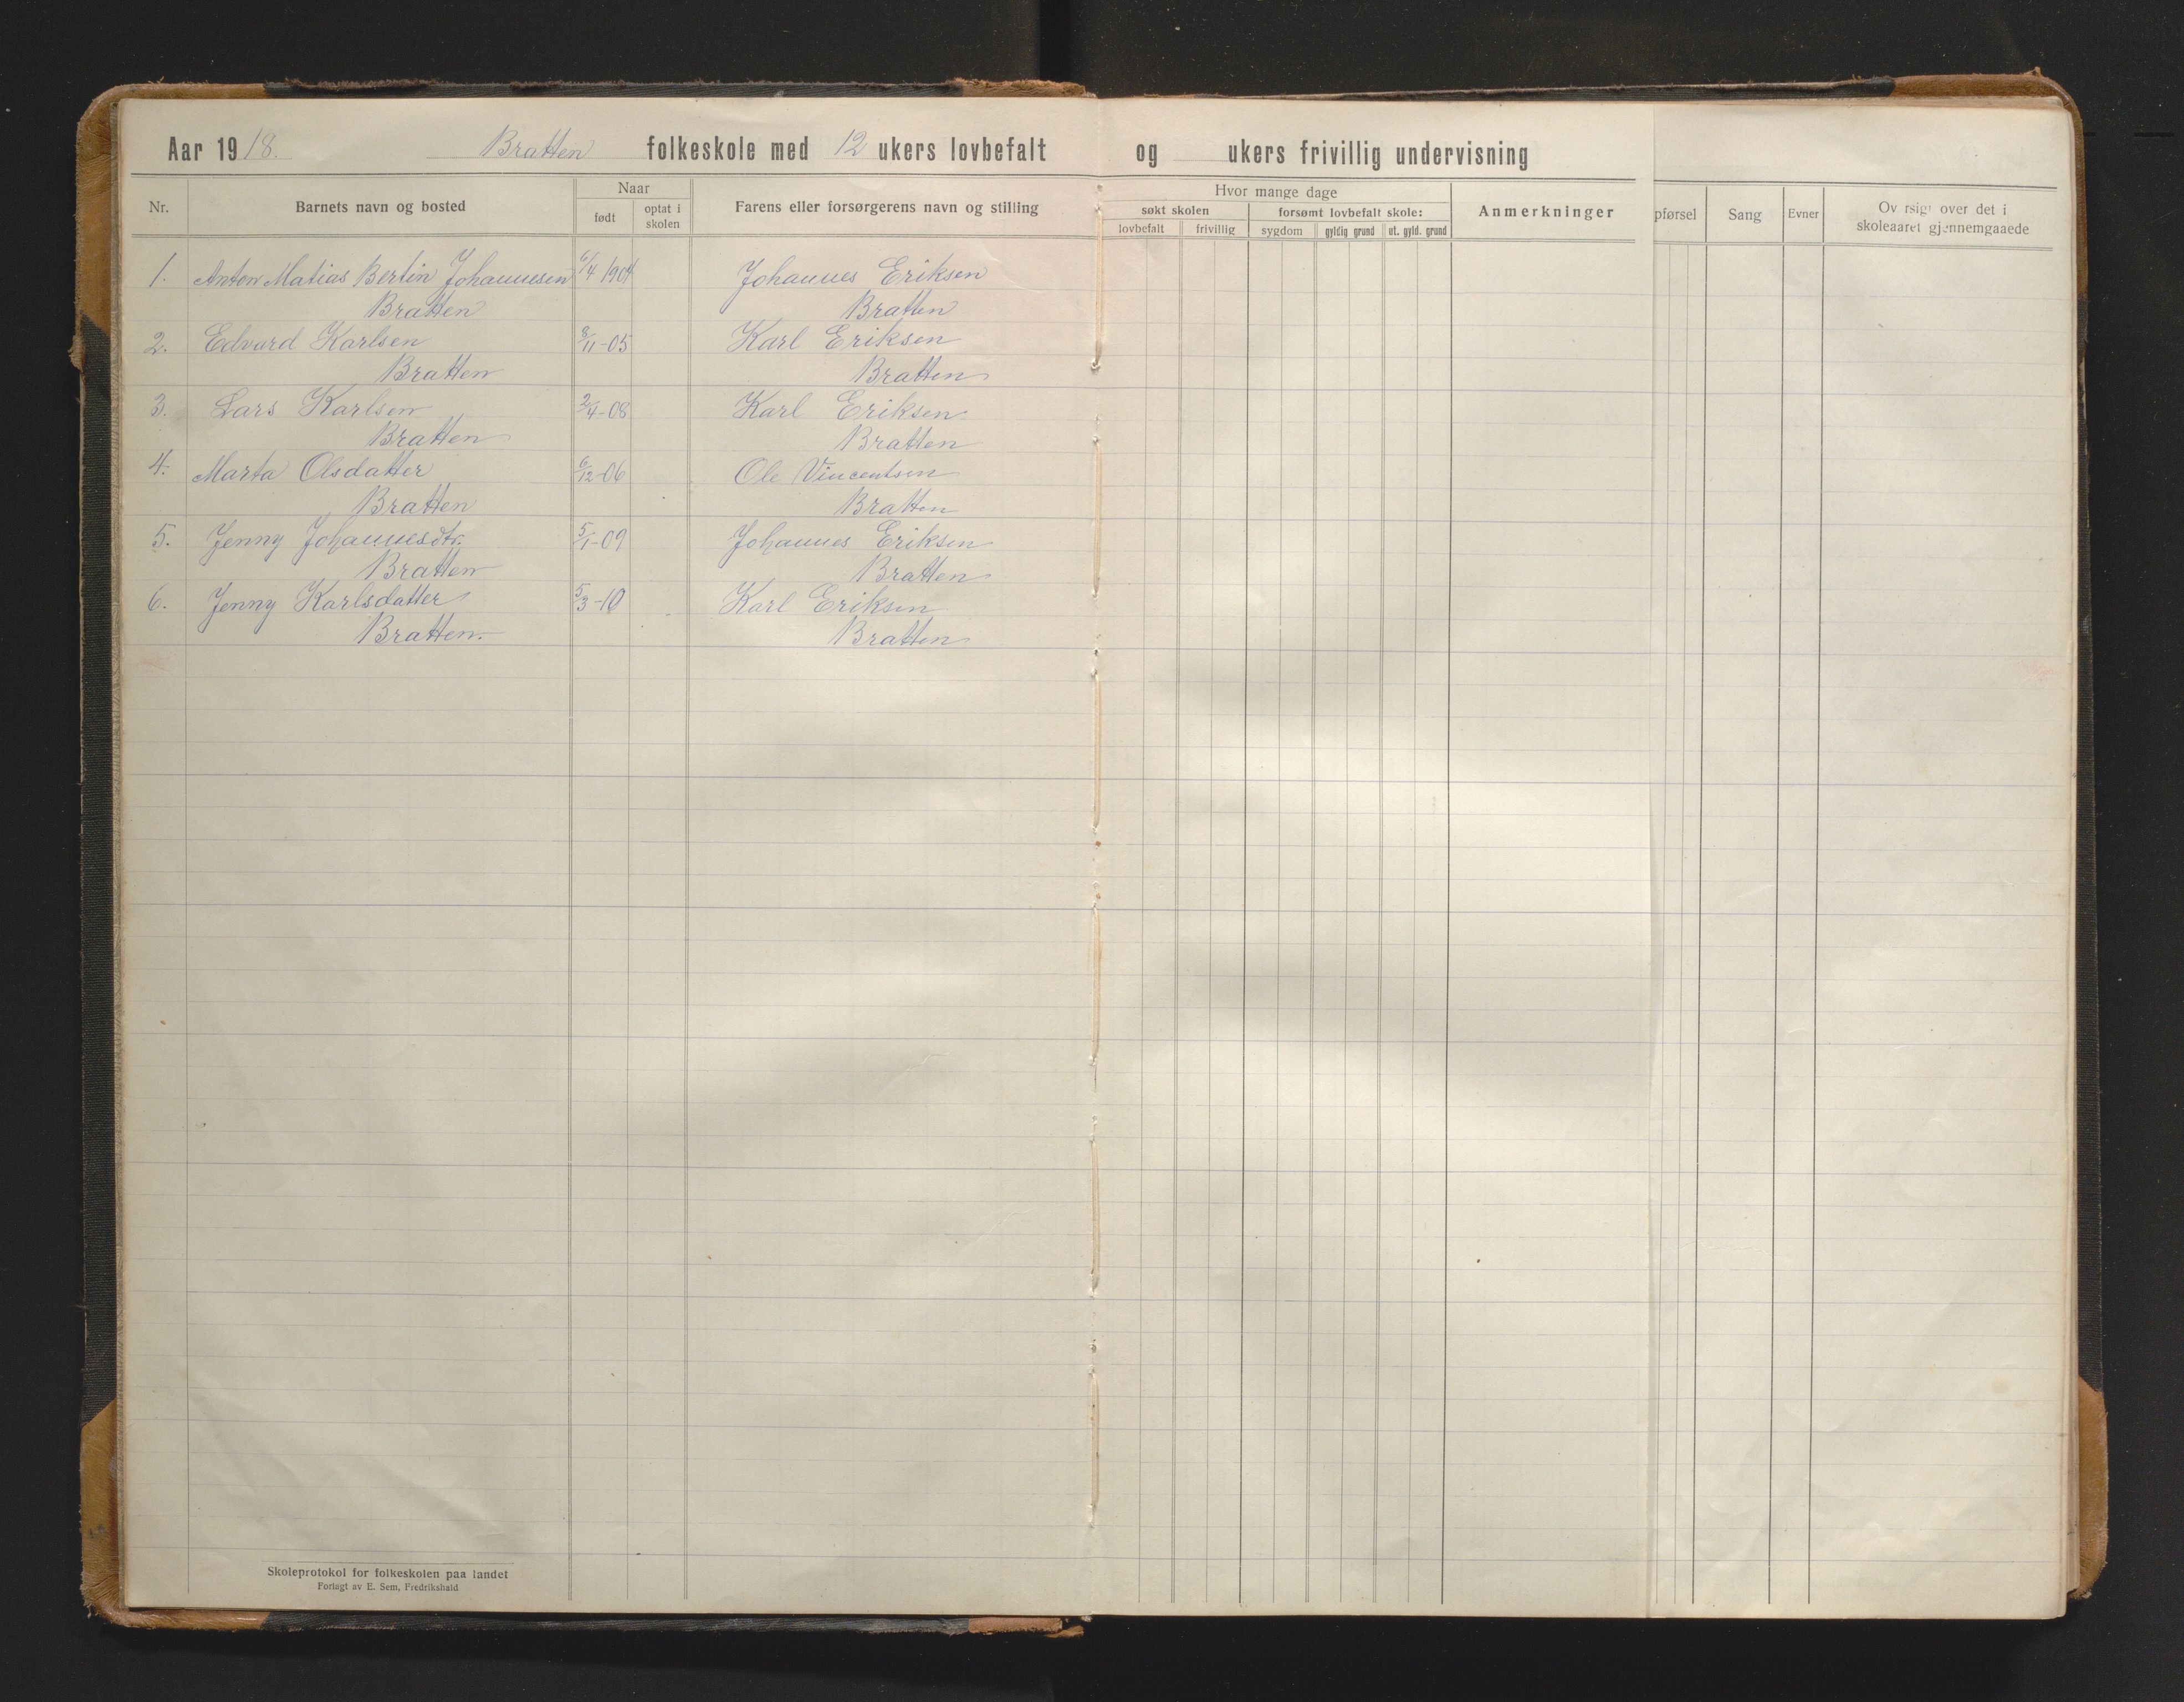 Aar 1918. Bratten folkeskole med 12 ukers lovbefalt og ukers frivillig undervisning
Nr. Barnets navn og bosted Naar født optat i skolen Farens eller forsørgerens navn og stilling
Hvor mange dage
søkt skolen forsømt lovbefalt skole:
lovbefalt frivillig sygdom gyldig grund ut. gyld. grund
Anmerkninger
pførsel Sang Evner Ov rsigt over det i
skoleaaret gjennemgaaede
1. Anton Matias Bertin Johannesen 6/4 1904 Johannes Eriksen
Bratten Bratten
2. Edvard Karlsen 8/11-05 Karl Eriksen
Bratten Bratten
3. Lars Karlsen 2/4-08 Karl Eriksen
Bratten Bratten
4. Marta Olsdatter 6/12-06 Ole Vincentsen
Bratten Bratten
5. Jenny Johannesdtr. 5/1-09 Johannes Eriksen
Bratten Bratten
6. Jenny Karlsdatter 5/3-10 Karl Eriksen
Bratten. Bratten
Skoleprotokol for folkeskolen paa landet
Forlagt av E. Sem, Fredrikshald